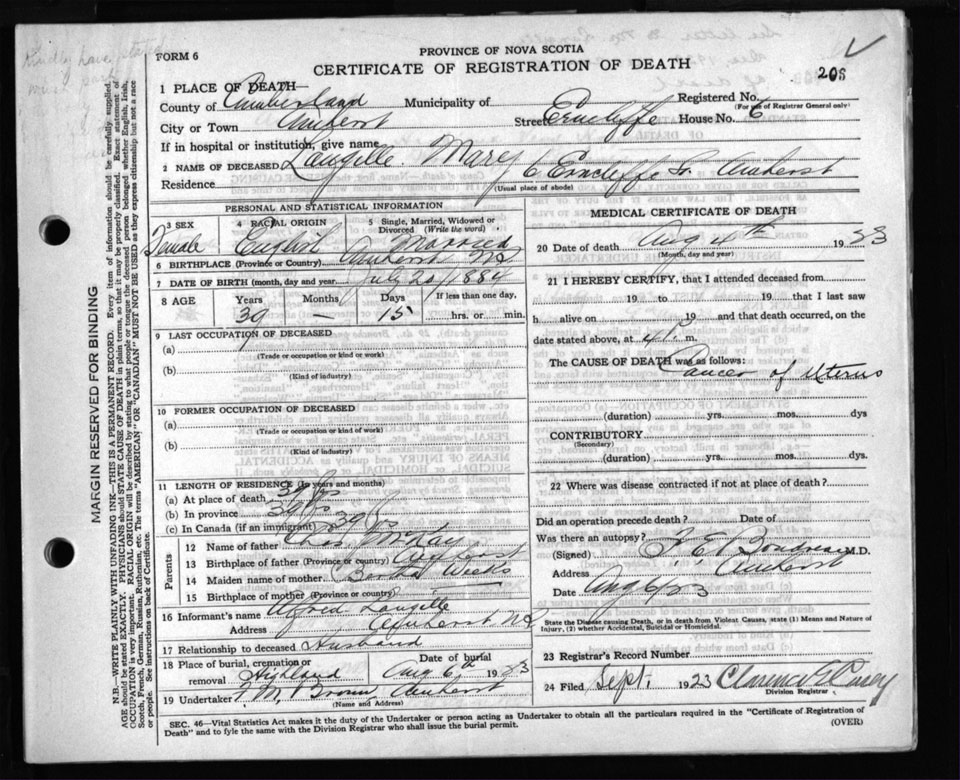 FORM 6
PROVINCE OF NOVA SCOTIA
CERTIFICATE OF REGISTRATION OF DEATH
208
1 PLACE OF DEATH—
County of Cumberland Municipality of Registered No.
(For use of Registrar General only)
City or Town Amherst Street Erncliffe House No. 6
If in hospital or institution, give name
2 NAME OF DECEASED Langille Mary
Residence 6 Erncliffe St. Amherst
(Usual place of abode)
PERSONAL AND STATISTICAL INFORMATION
3 SEX Female
4 RACIAL ORIGIN English
5 Single, Married, Widowed or Divorced (Write the word) Married
6 BIRTHPLACE (Province or Country) Amherst NS
7 DATE OF BIRTH (month, day and year) July 20/1884
8 AGE Years 39 Months — Days 15 If less than one day, hrs. or min.
9 LAST OCCUPATION OF DECEASED
(a)
(Trade or occupation or kind of work)
(b)
(Kind of industry)
10 FORMER OCCUPATION OF DECEASED
(a)
(Trade or occupation or kind of work)
(b)
(Kind of industry)
11 LENGTH OF RESIDENCE (In years and months)
(a) At place of death
(b) In province 39 yrs
(c) In Canada (if an immigrant) 39 yrs
Parents
12 Name of father Chas.
13 Birthplace of father (Province or country) Amherst
14 Maiden name of mother Weeks
15 Birthplace of mother (Province or country)
16 Informant's name Alfred Langille
Address Amherst NS
17 Relationship to deceased Husband
18 Place of burial, cremation or removal Highland Date of burial Aug 6th 1923
19 Undertaker Brown Amherst
(Name and Address)
MEDICAL CERTIFICATE OF DEATH
20 Date of death Aug 4th 1923
(Month, day and year)
21 I HEREBY CERTIFY, that I attended deceased from
19 to 19 that I last saw
h alive on 19 and that death occurred, on the
date stated above, at 4 P. m.
The CAUSE OF DEATH was as follows:
Cancer of Uterus
(duration) yrs. mos. dys
CONTRIBUTORY
(Secondary)
(duration) yrs. mos. dys
22 Where was disease contracted if not at place of death?
Did an operation precede death? Date of
Was there an autopsy?
(Signed) Boudreau M.D.
Address Amherst
Date Aug 6/23
State the Disease causing Death, or in death from Violent Causes, state (1) Means and Nature of Injury, (2) whether Accidental, Suicidal or Homicidal.
23 Registrar's Record Number
24 Filed Sept. 1923 Clarence
Division Registrar
SEC. 46—Vital Statistics Act makes it the duty of the Undertaker or person acting as Undertaker to obtain all the particulars required in the "Certificate of Registration of
Death" and to fyle the same with the Division Registrar who shall issue the burial permit. (OVER)
MARGIN RESERVED FOR BINDING
N.B.—WRITE PLAINLY WITH UNFADING INK—THIS IS A PERMANENT RECORD. Every item of information should be carefully supplied.
AGE should be stated EXACTLY. PHYSICIANS should STATE CAUSE OF DEATH in plain terms, so that it may be properly classified. Exact statement of
OCCUPATION is very important. RACIAL ORIGIN will be described by stating to what people or tongue the deceased person belonged whether English, Irish,
Scotch, French, German, Russian, Ruthenian, etc. The terms "AMERICAN" OR "CANADIAN" MUST NOT BE USED as they express citizenship but not a race
or people. See instructions on back of Certificate.